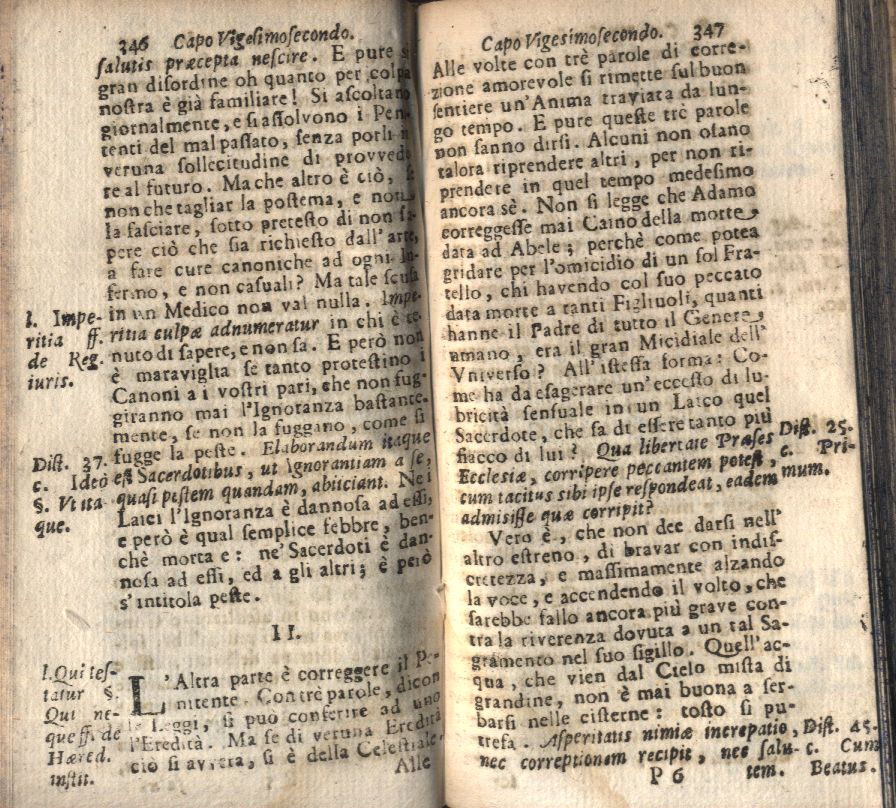 346 Capo Vigesimosecondo.
salutis præcepta nescire. E pure si
gran disordine oh quanto per colpa
nostra è già familiare! Si ascoltano
giornalmente, e si assolvono i Pen-
tenti del mal passato, senza porsi in
veruna sollecitudine di provvede-
re al futuro. Ma che altro è ciò, se
non che tagliar la postema, e non
la fasciare, sotto pretesto di non sa-
pere ciò che sia richiesto dall'arte,
a fare cure canoniche ad ogni In-
fermo, e non casuali? Ma tale scusa
in un Medico non val nulla. Impe-
ritia culpæ adnumeratur in chi è te-
nuto di sapere, e non sa. E però non
è maraviglia se tanto protestino i
Canoni a i vostri pari, che non fug-
giranno mai l'Ignoranza bastante-
mente, se non la fuggano, come si
fugge la peste. Elaborandum itaque
est Sacerdotibus, ut ignorantiam a se,
quasi pestem quandam, abiiciant. Nei
Laici l'Ignoranza è dannosa ad essi,
e però è qual semplice febbre, ben-
chè morta e: ne' Sacerdoti è dan-
nosa ad essi, ed a gli altri; è però
s'intitola peste.
l. Impe-
ritia ff.
de Reg.
iuris.
Dist. 37.
c. Ideò
§. Vt ita-
que.
II.
L'Altra parte è correggere il Pe-
nitente. Con trè parole, dicon
le Leggi, si può conferire ad uno
l'Eredità. Ma se di veruna Eredità
ciò si avvera, si è della Celestiale.
Alle
l. Qui tes-
tatur §.
Qui ne-
que ff. de
Hæred.
instit.
Capo Vigesimosecondo. 347
Alle volte con trè parole di corre-
zione amorevole si rimette sul buon
sentiere un'Anima traviata da lun-
go tempo. E pure queste trè parole
non sanno dirsi. Alcuni non osano
talora riprendere altri, per non ri-
prendere in quel tempo medesimo
ancora sè. Non si legge che Adamo
correggesse mai Caino della morte
data ad Abele; perchè come potea
gridare per l'omicidio di un sol Fra-
tello, chi havendo col suo peccato
data morte a tanti Figliuoli, quanti
hanne il Padre di tutto il Genere
umano, era il gran Micidiale dell'
Vniverso? All'istessa forma: Co-
me ha da esagerare un'eccesso di lu-
bricità sensuale in un Laico quel
Sacerdote, che sa di essere tanto più
fiacco di lui? Qua libertate Præses
Ecclesiæ, corripere peccantem potest,
cum tacitus sibi ipse respondeat, eadem
admisisse quæ corripit?
Dist. 25.
c. Pri-
mum.
Vero è, che non dee darsi nell'
altro estreno, di bravar con indis-
cretezza, e massimamente alzando
la voce, e accendendo il volto, che
sarebbe fallo ancora più grave con-
tra la riverenza dovuta a un tal Sa-
gramento nel suo sigillo. Quell'ac-
qua, che vien dal Cielo mista di
grandine, non è mai buona a ser-
barsi nelle cisterne: tosto si pu-
trefa. Asperitatis nimiæ increpatio,
nec correptionem recipit, nec salu-
P 6 tem.
Dist. 45.
c. Cum
Beatus.